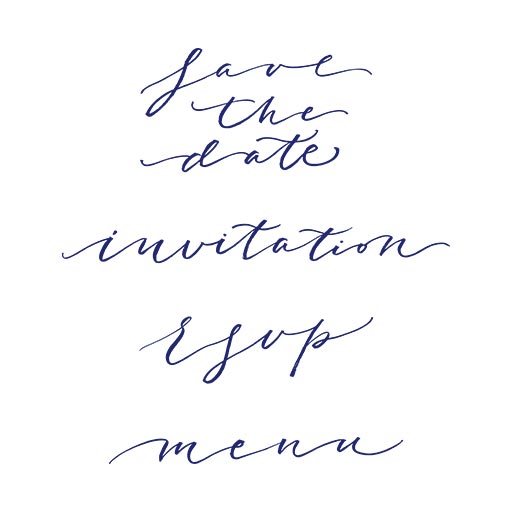 save
the
date
invitation
rsvp
menu